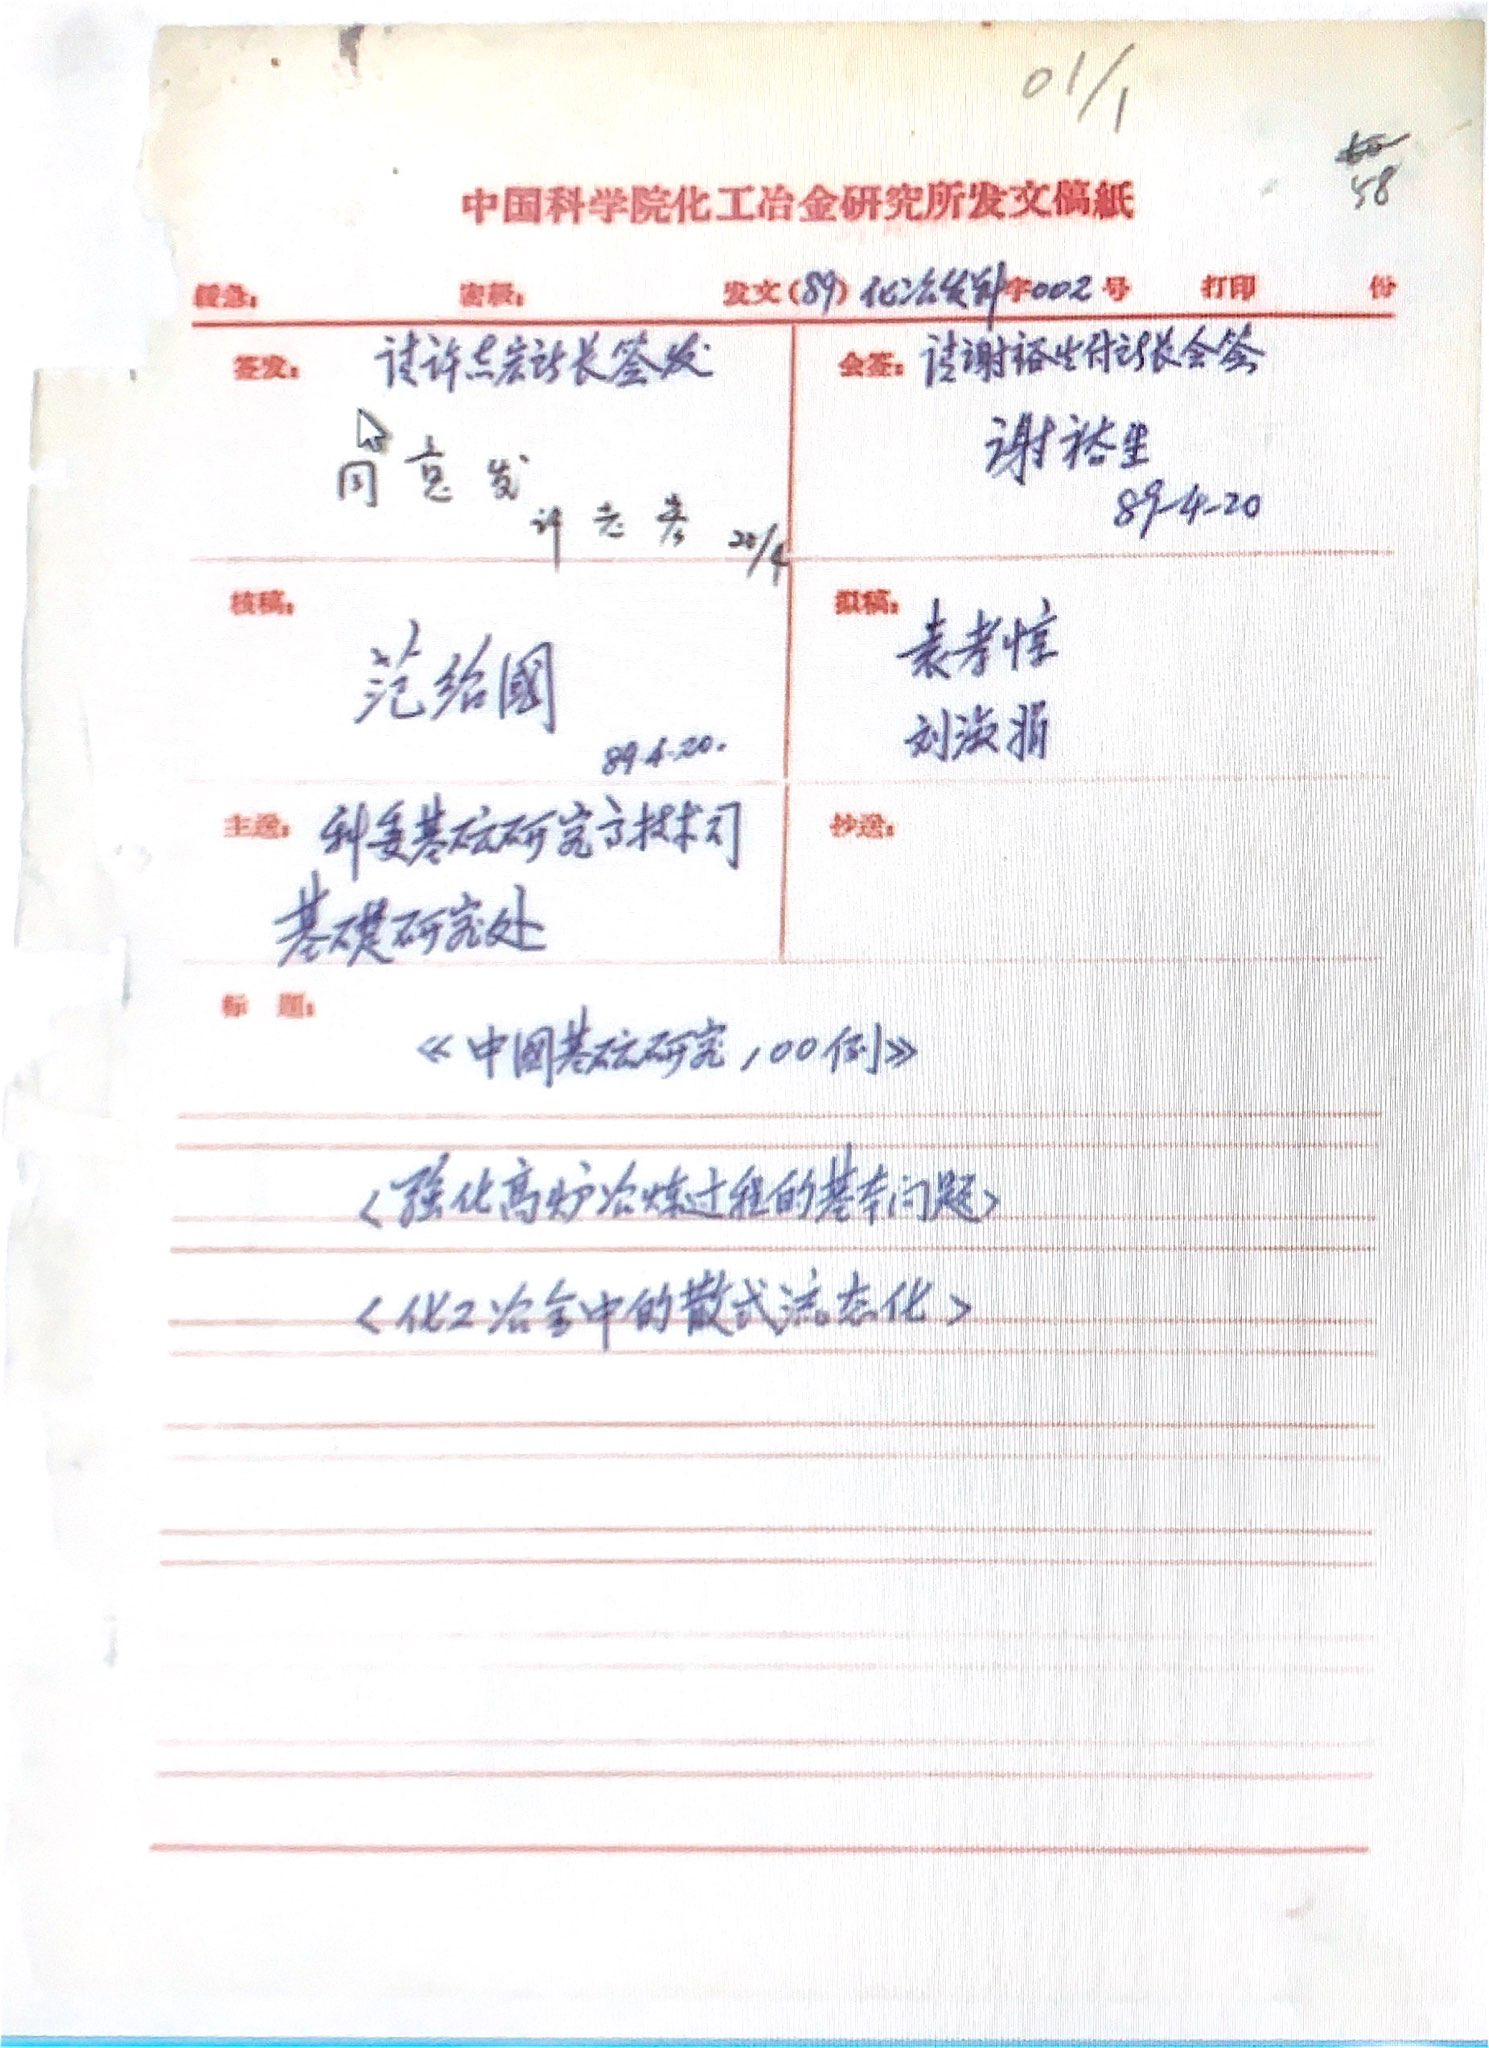 01/1
58
中国科学院化工冶金研究所发文稿紙
缓急: 密级: 发文(89)化冶发科字002号 打印 份
签发: 请许志宏所长签发
同意发
许志宏 20/4
会签: 请谢裕生付所长会签
谢裕生
89-4-20
核稿:
范绍國
89.4.20.
拟稿:
袁孝惇
刘淑娟
主送: 科委基础研究高技术司
基礎研究处
抄送:
标 题:
《中國基础研究100例》
〈强化高炉冶炼过程的基本问题〉
〈化工冶金中的散式流态化〉